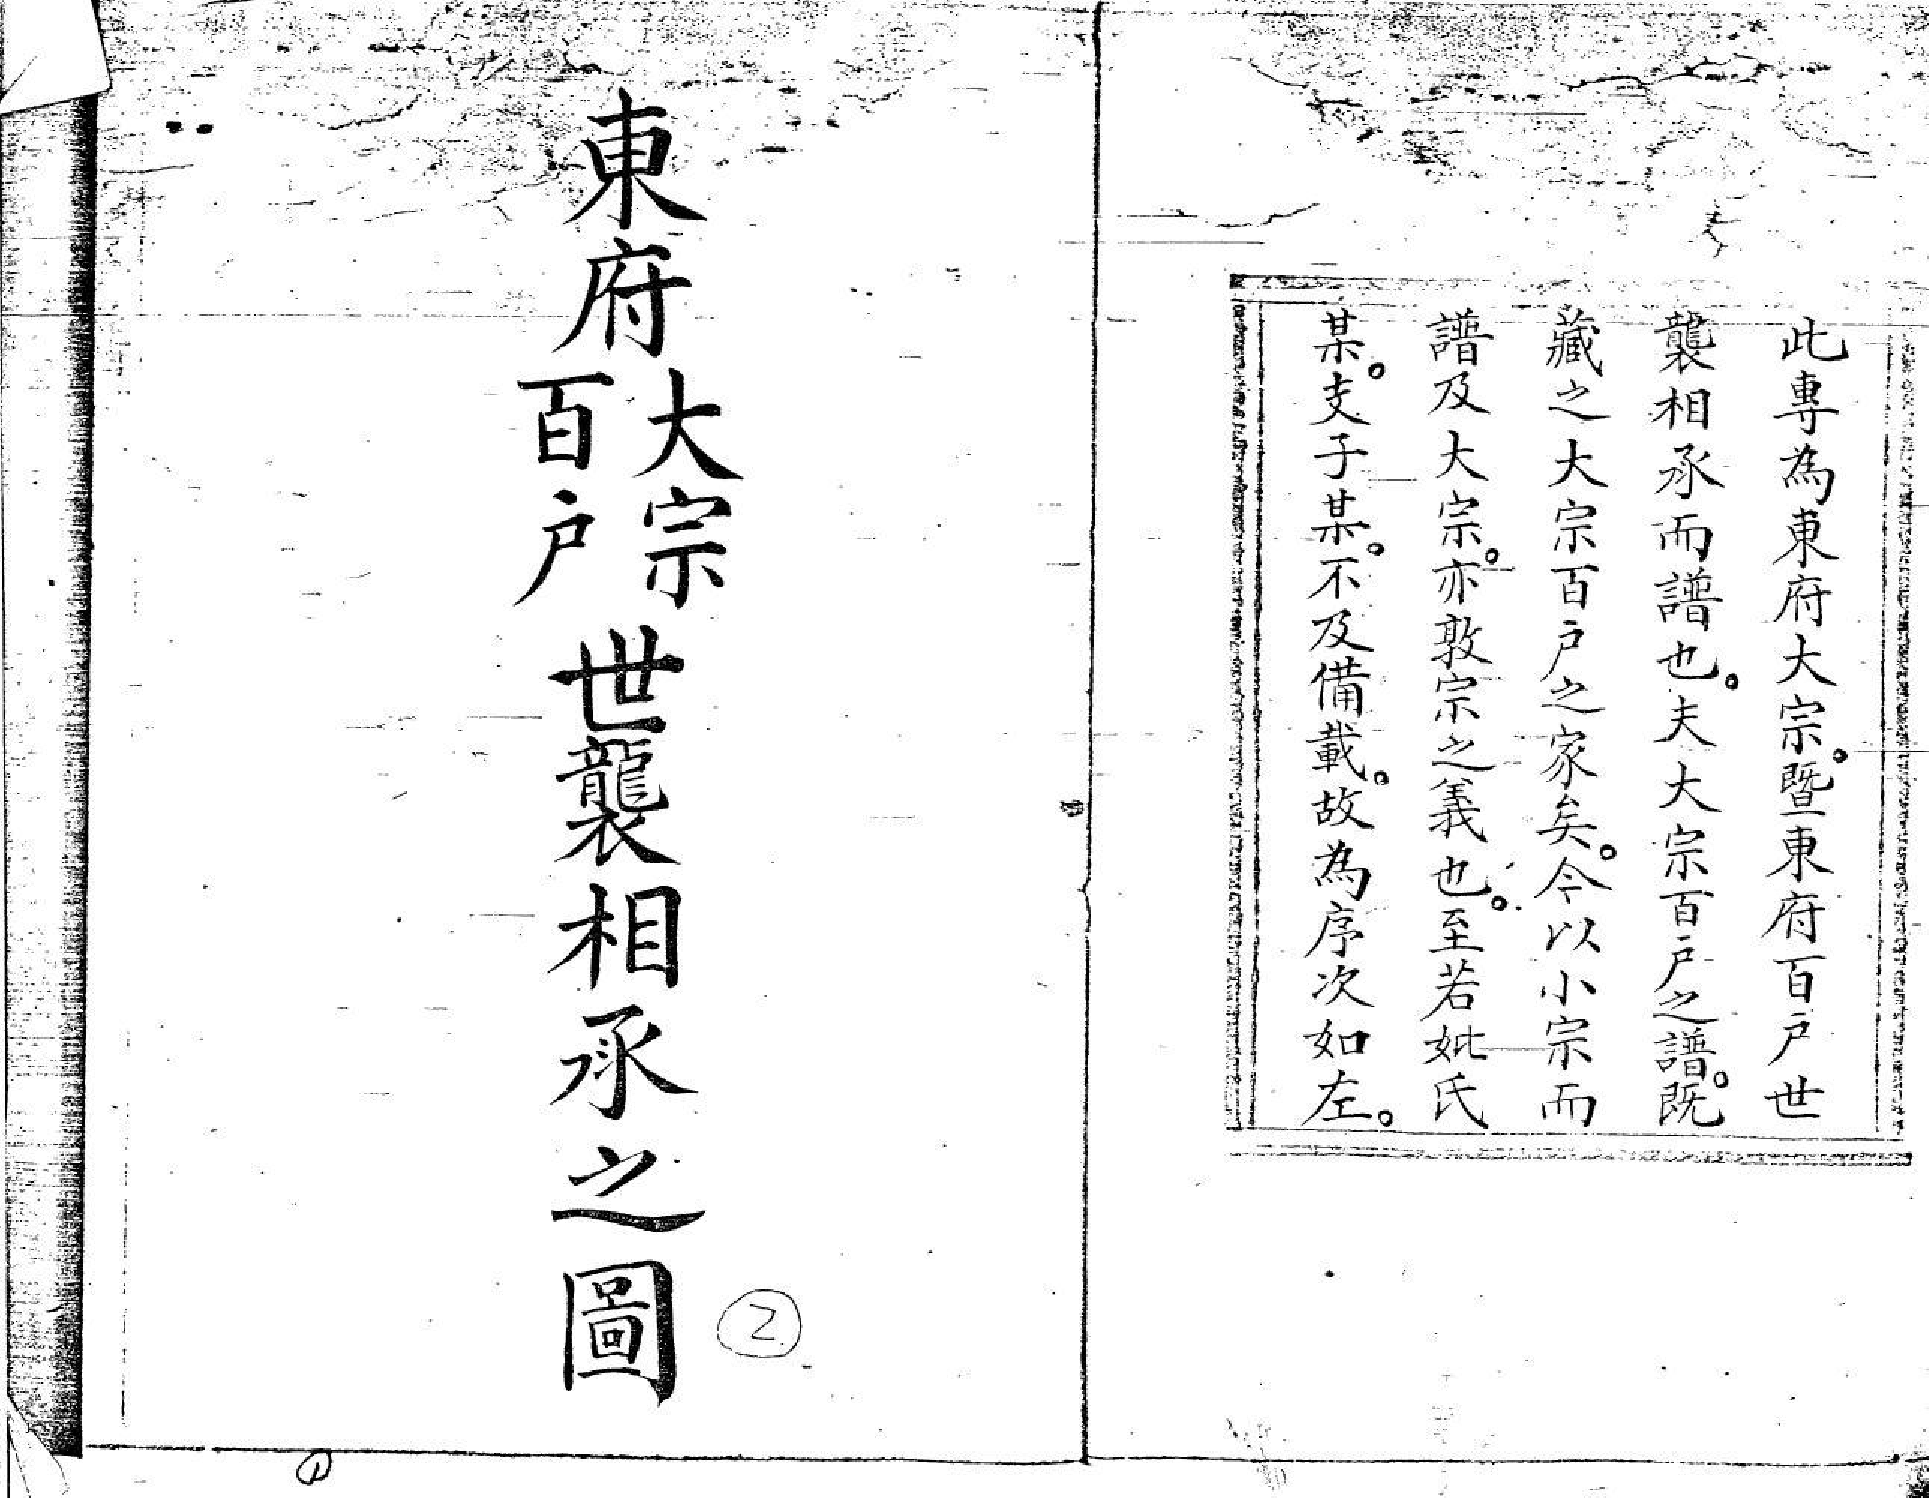 此專為東府大宗。暨東府百户世
襲相承而譜也。夫大宗百户之譜。既
藏之大宗百户之家矣。今以小宗而
譜及大宗。亦敦宗之義也。至若妣氏
某。支子某。不及備載。故為序次如左。
東府
大宗
百户
世襲相承之圖
2
1